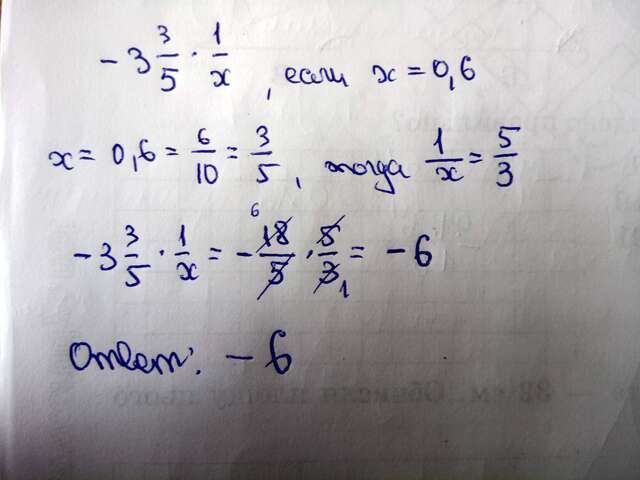 -3 3/5 · 1/x, если x = 0,6
x = 0,6 = 6/10 = 3/5, тогда 1/x = 5/3
-3 3/5 · 1/x = - 18/5 · 5/3 = -6
6 1
Ответ: -6